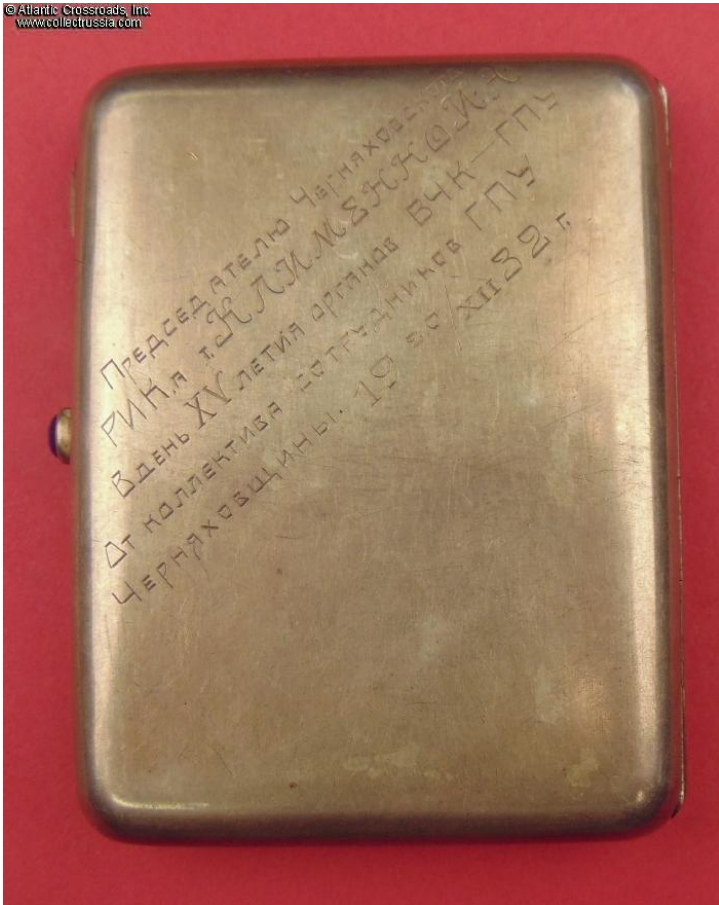 © Atlantic Crossroads, Inc.
www.collectrussia.com
Председателю Черняховского
РИК.а т. КЛИМЕНКО И.Н
В день XV летия органов ВЧК—ГПУ
От коллектива сотрудников ГПУ
Черняховщины. 19 20/XII 32 г.